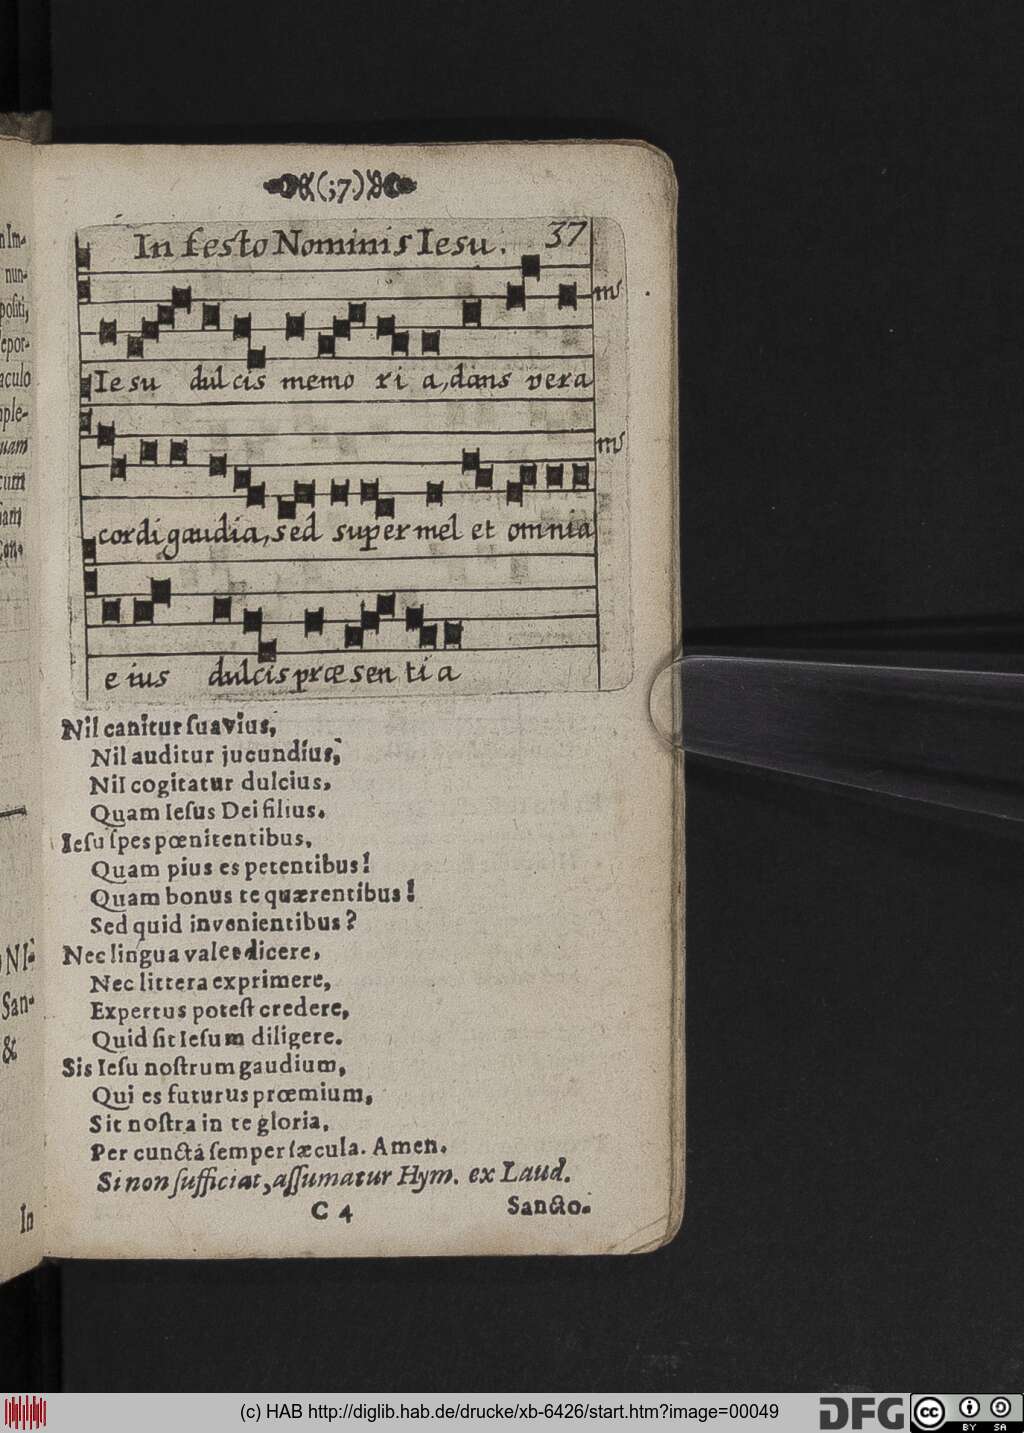 (37)
In festo Nominis Iesu. 37
Ie su dulcis memo ri a, dans vera
cordi gaudia, sed super mel et omnia
e ius dulcis præsen ti a
Nil canitur ſuavius,
Nil auditur jucundius,
Nil cogitatur dulcius,
Quam Ieſus Dei filius.
Ieſu ſpes pœnitentibus,
Quam pius es petentibus!
Quam bonus te quærentibus!
Sed quid invenientibus?
Nec lingua valet dicere,
Nec littera exprimere,
Expertus poteſt credere,
Quid ſit Ieſum diligere.
Sis Ieſu noſtrum gaudium,
Qui es futurus prœmium,
Sit noſtra in te gloria,
Per cuncta ſemper ſæcula. Amen.
Si non ſufficiat, aſſumatur Hym. ex Laud.
C 4 Sancto.
nIm-
nun-
poſiti,
epor-
aculo
mple-
uam
cum
ſiam
Con-
NI-
San-
&
In
(c) HAB http://diglib.hab.de/drucke/xb-6426/start.htm?image=00049
DFG
cc BY SA